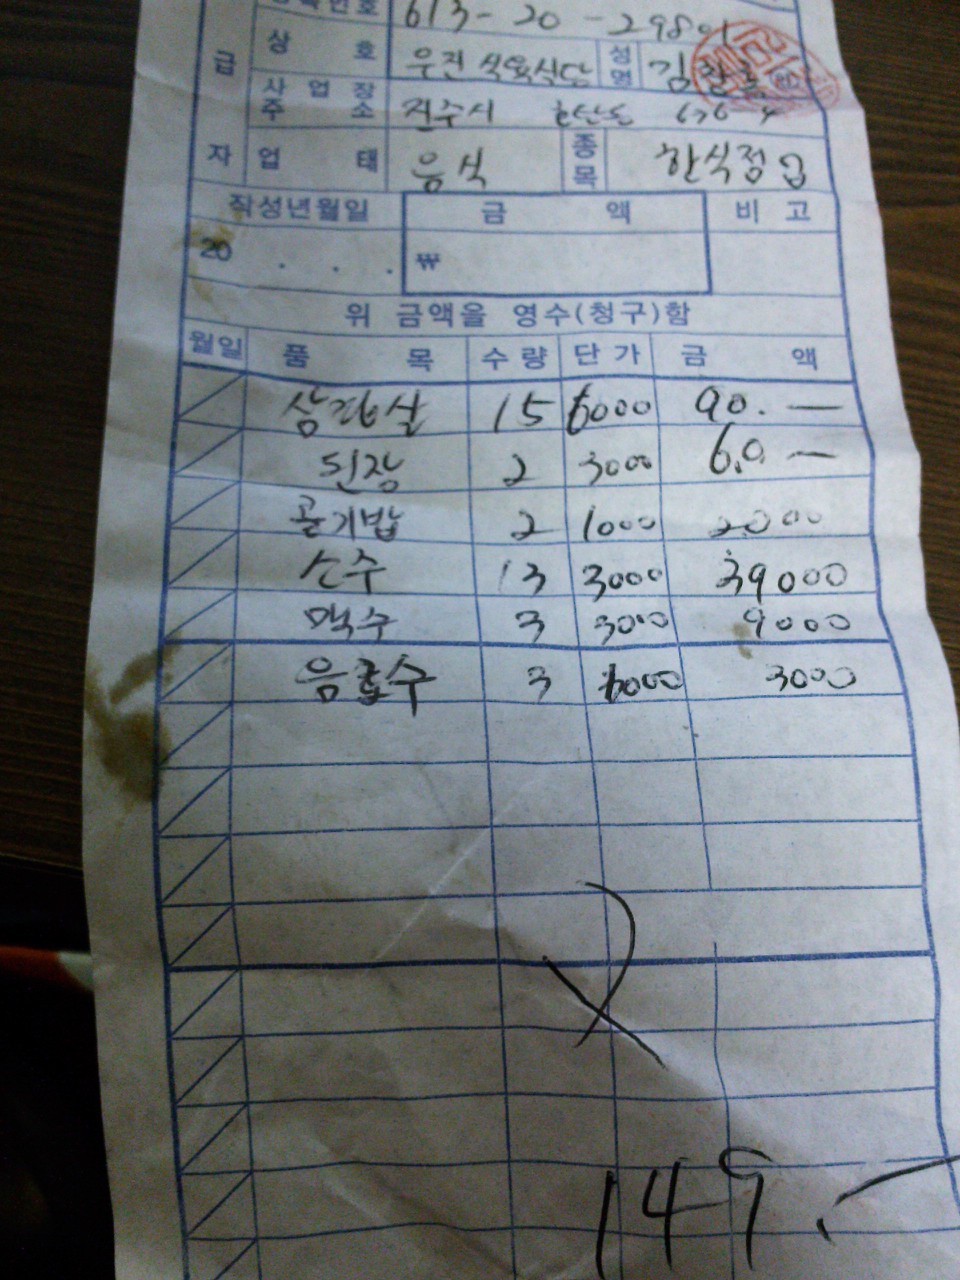 613-20-29801
급 상 호 우진식육식당 성명 김
사업장 주소 진주시
자 업 태 음식 종목 한식정육
작성년월일 금 액 비 고
20 . . . ₩
위 금액을 영수(청구)함
월일 품 목 수량 단가 금 액
삼겹살 15 6000 90.—
된장 2 3000 6.0.—
공기밥 2 1000 2000
소주 13 3000 39000
맥주 3 3000 9000
음료수 3 1000 3000
149.—